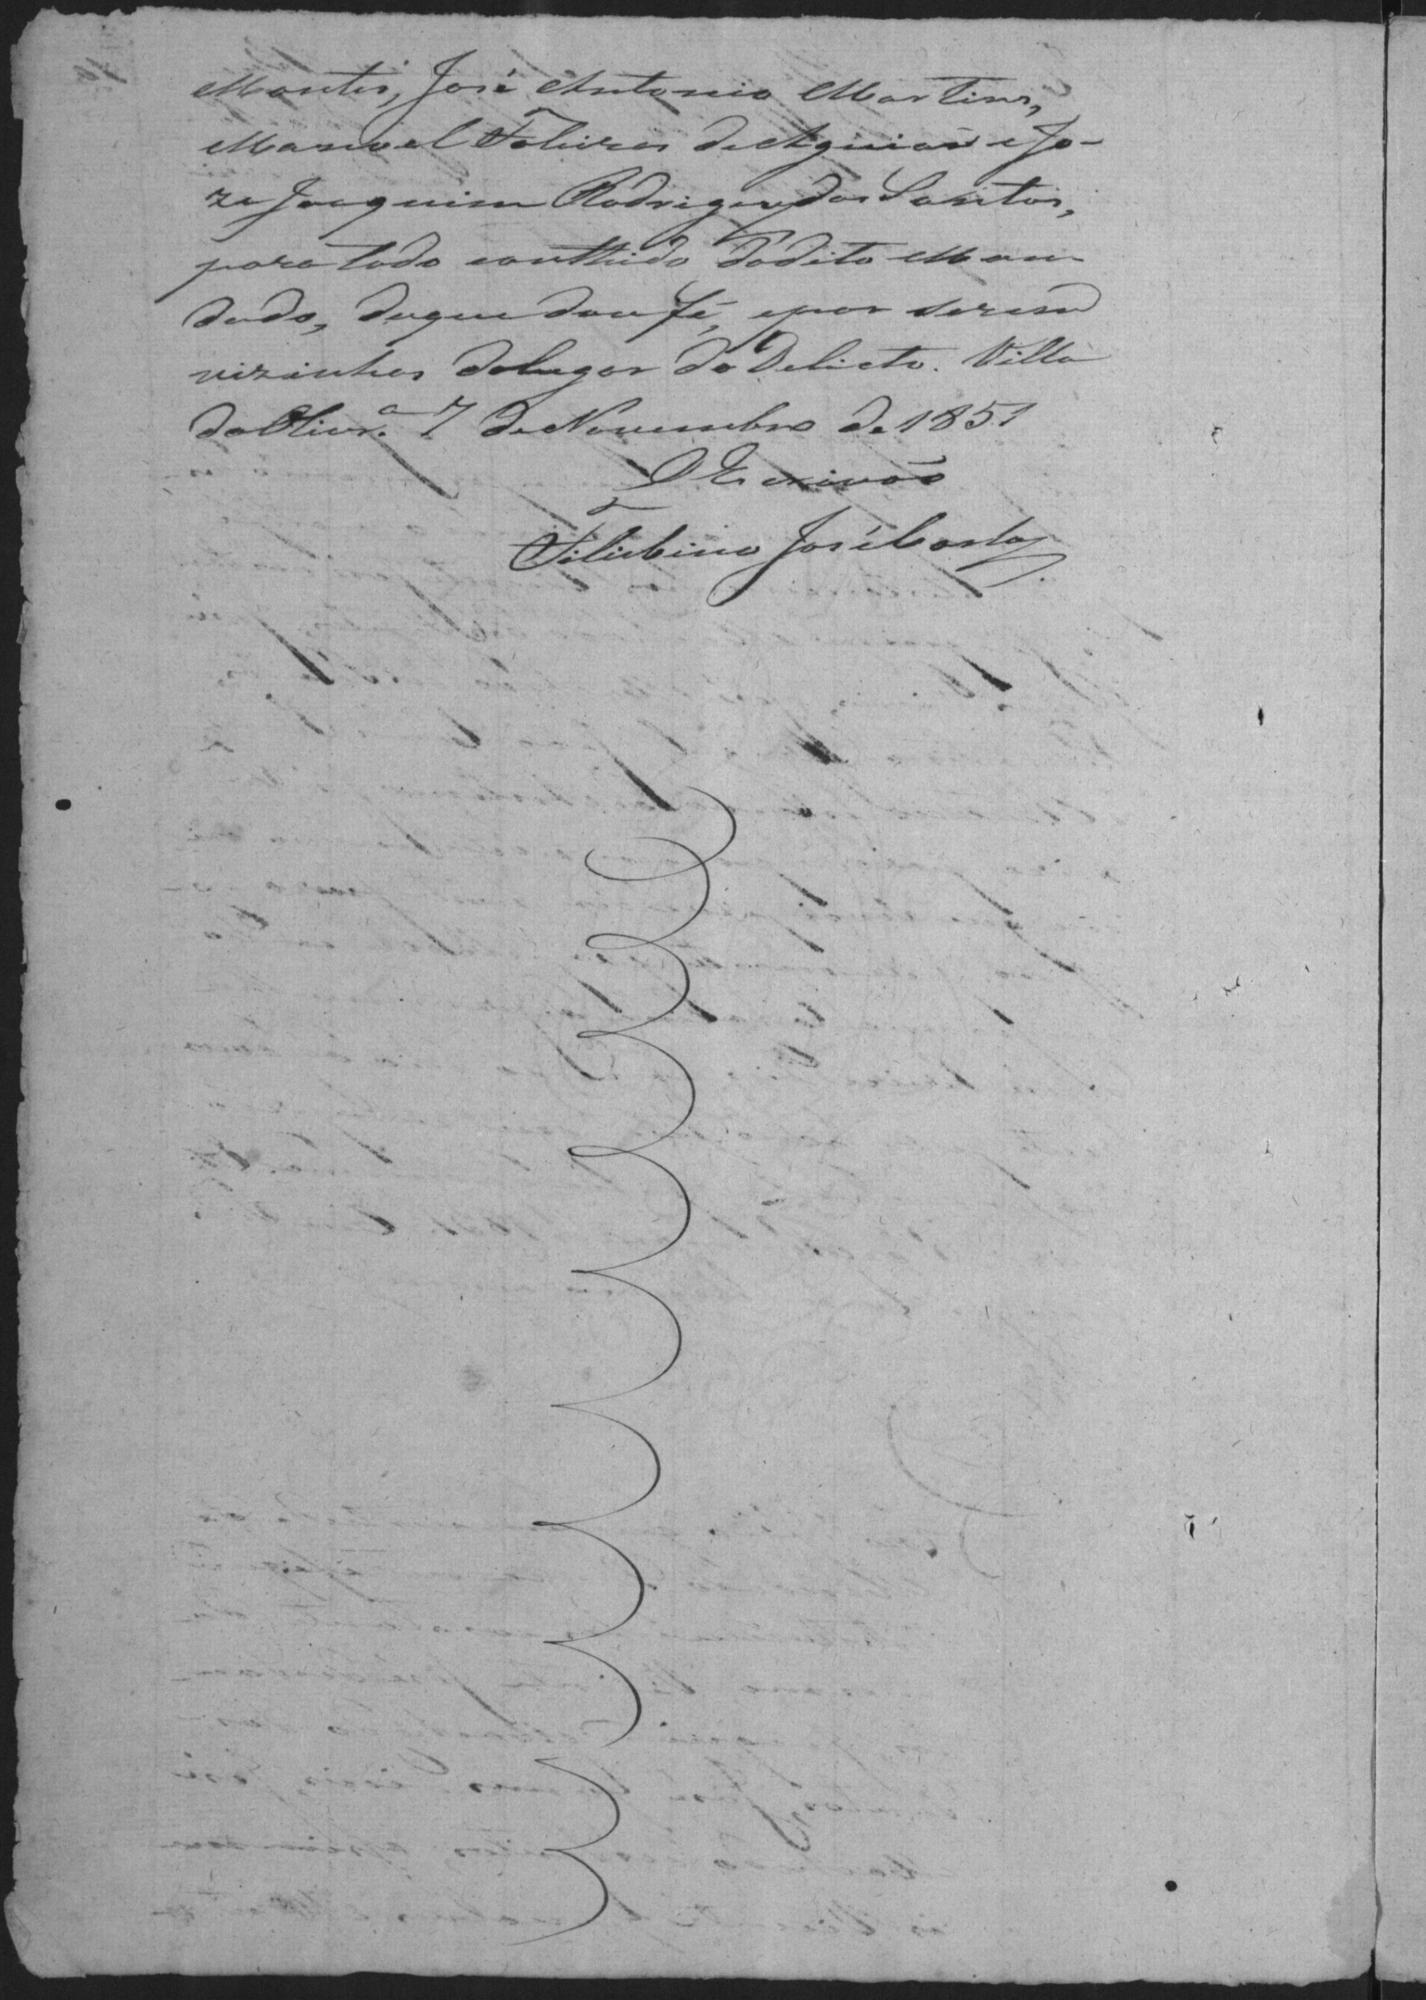 Montes, José Antonio Martins,
Manoel Tolires de Aguiar e Jo-
ze Joaquim Rodrigues dos Santos,
para todo conthudo do dito Man
dado, do que dou fé, e por serem
vizinhos do lugar do Delicto. Villa
da Oliv.ª 7 de Novembro de 1851
O Escrivaõ
José Costa